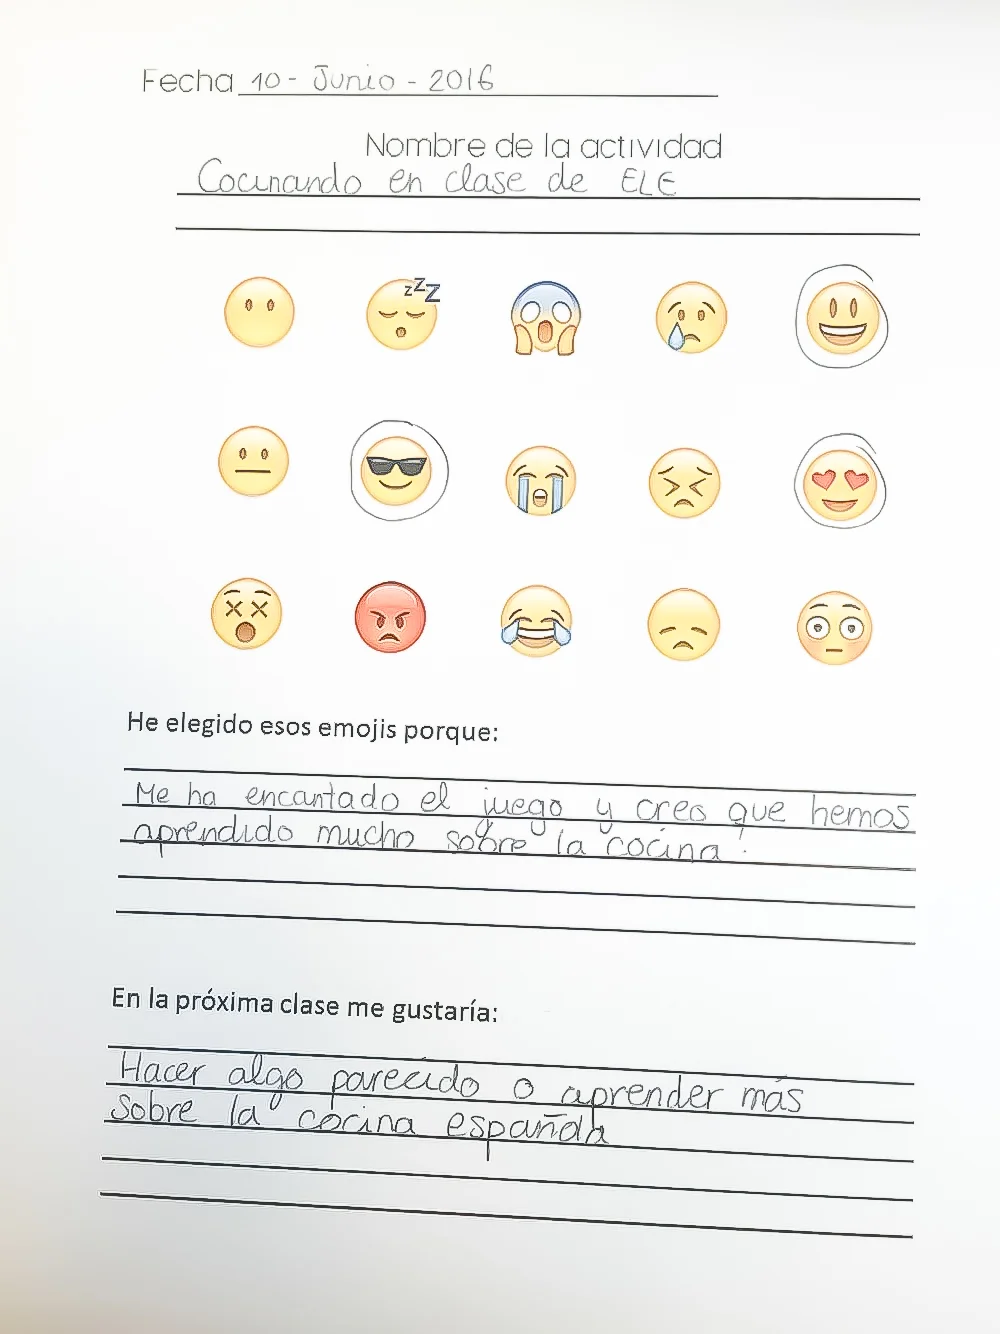 Fecha 10 - Junio - 2016
Nombre de la actividad
Cocinando en clase de ELE
zzz
He elegido esos emojis porque:
Me ha encantado el juego y creo que hemos
aprendido mucho sobre la cocina.
En la próxima clase me gustaría:
Hacer algo parecido o aprender más
sobre la cocina española